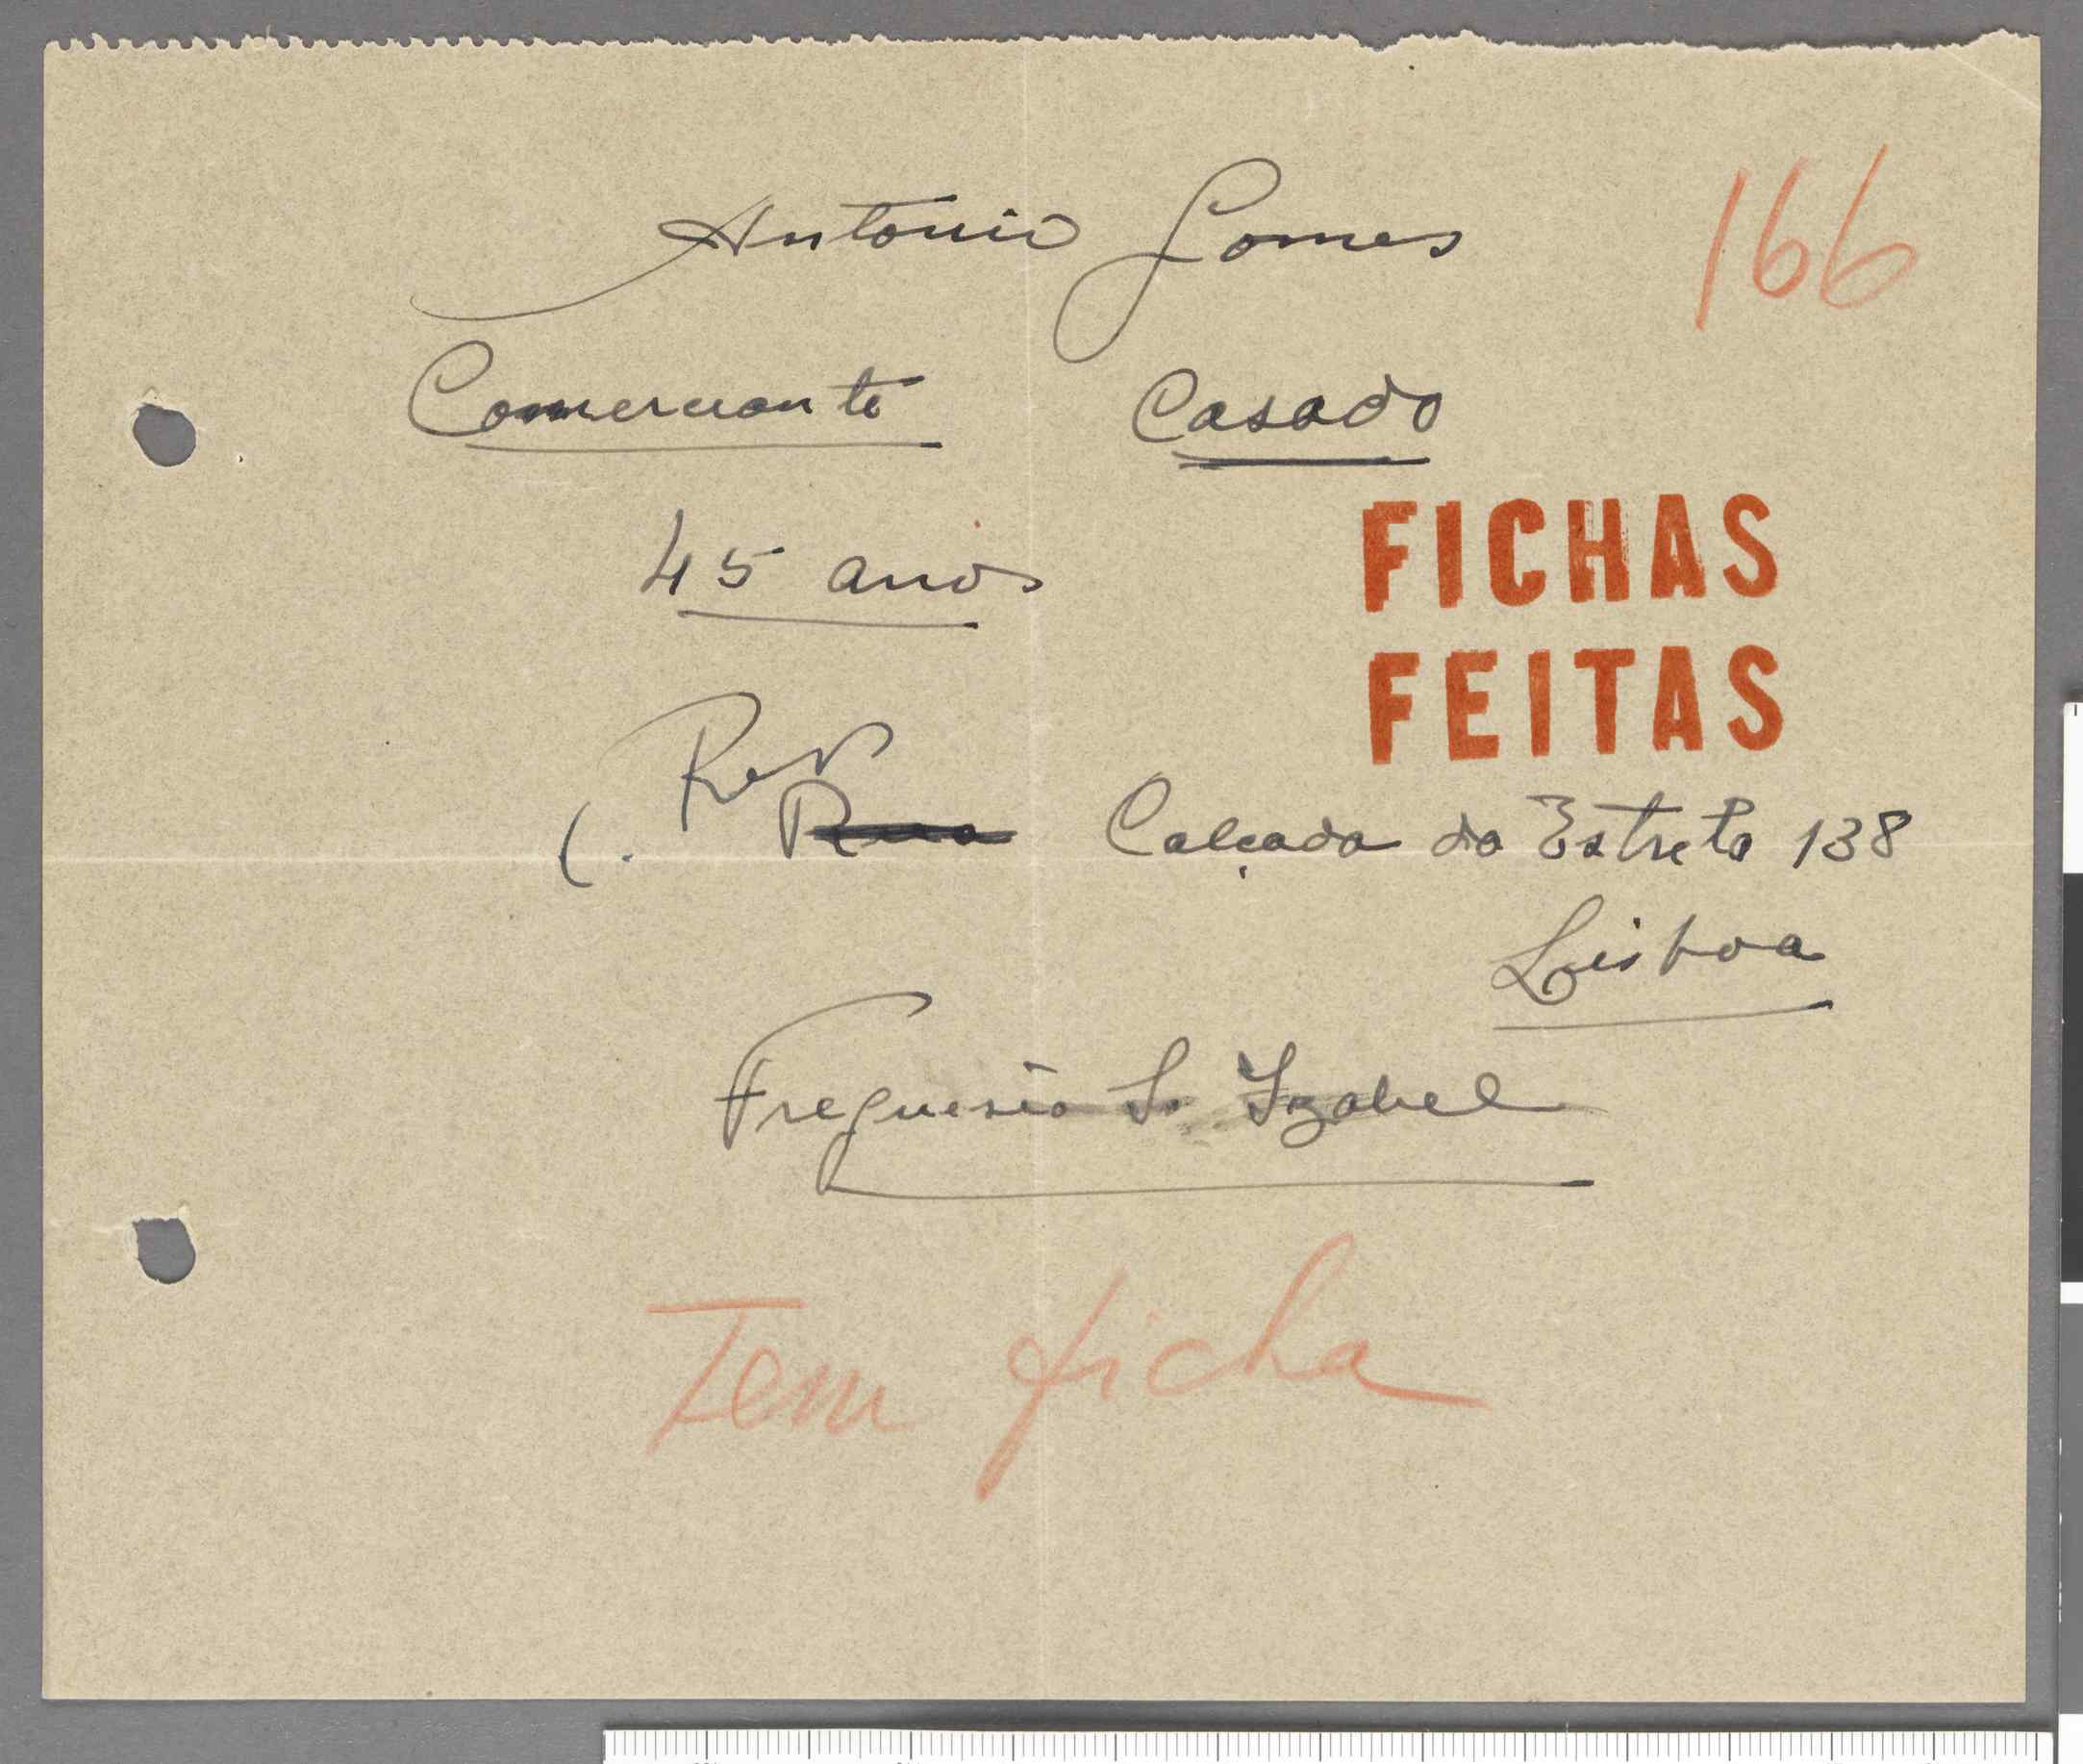 166
Antonio Gomes
Comerciante Casado
45 anos
FICHAS
FEITAS
Res
Rua Calçada da Estrela 138
Lisboa
Freguesia S. Izabel
Tem ficha